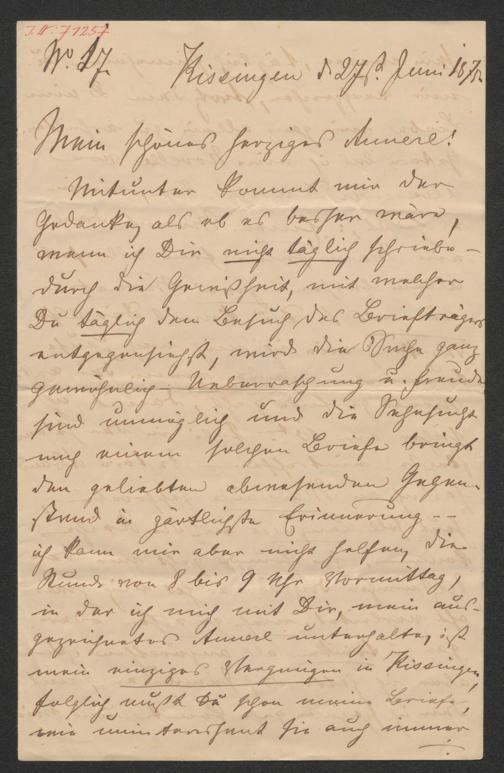 I.N. 71257
No. 17.
Kissingen d. 27st. Juni 187
Mein schönes herziges Annerl!
Mitunter kommt mir der
Gedanke, als ob es besser wäre,
wenn ich Dir nicht täglich schriebe –
durch die Gewißheit, mit welcher
Du täglich dem Besuch des Briefträgers
entgegensiehst, wird die Sache ganz
gewöhnlich – Ueberraschung u. Freude
sind unmöglich und die Sehnsucht
nach einem solchen Briefe bringt
den geliebten abwesenden Gegen-
stand in zärtlichste Erinnerung --
ich kann mir aber nicht helfen, die
Stunde von 8 bis 9 Uhr Vormittag,
in der ich mich mit Dir, mein aus-
gezeichnetes Annerl unterhalte, ist
mein einziges Vergnügen in Kissingen,
folglich mußt Du schon meine Briefe,
wie uninteressant sie auch immer